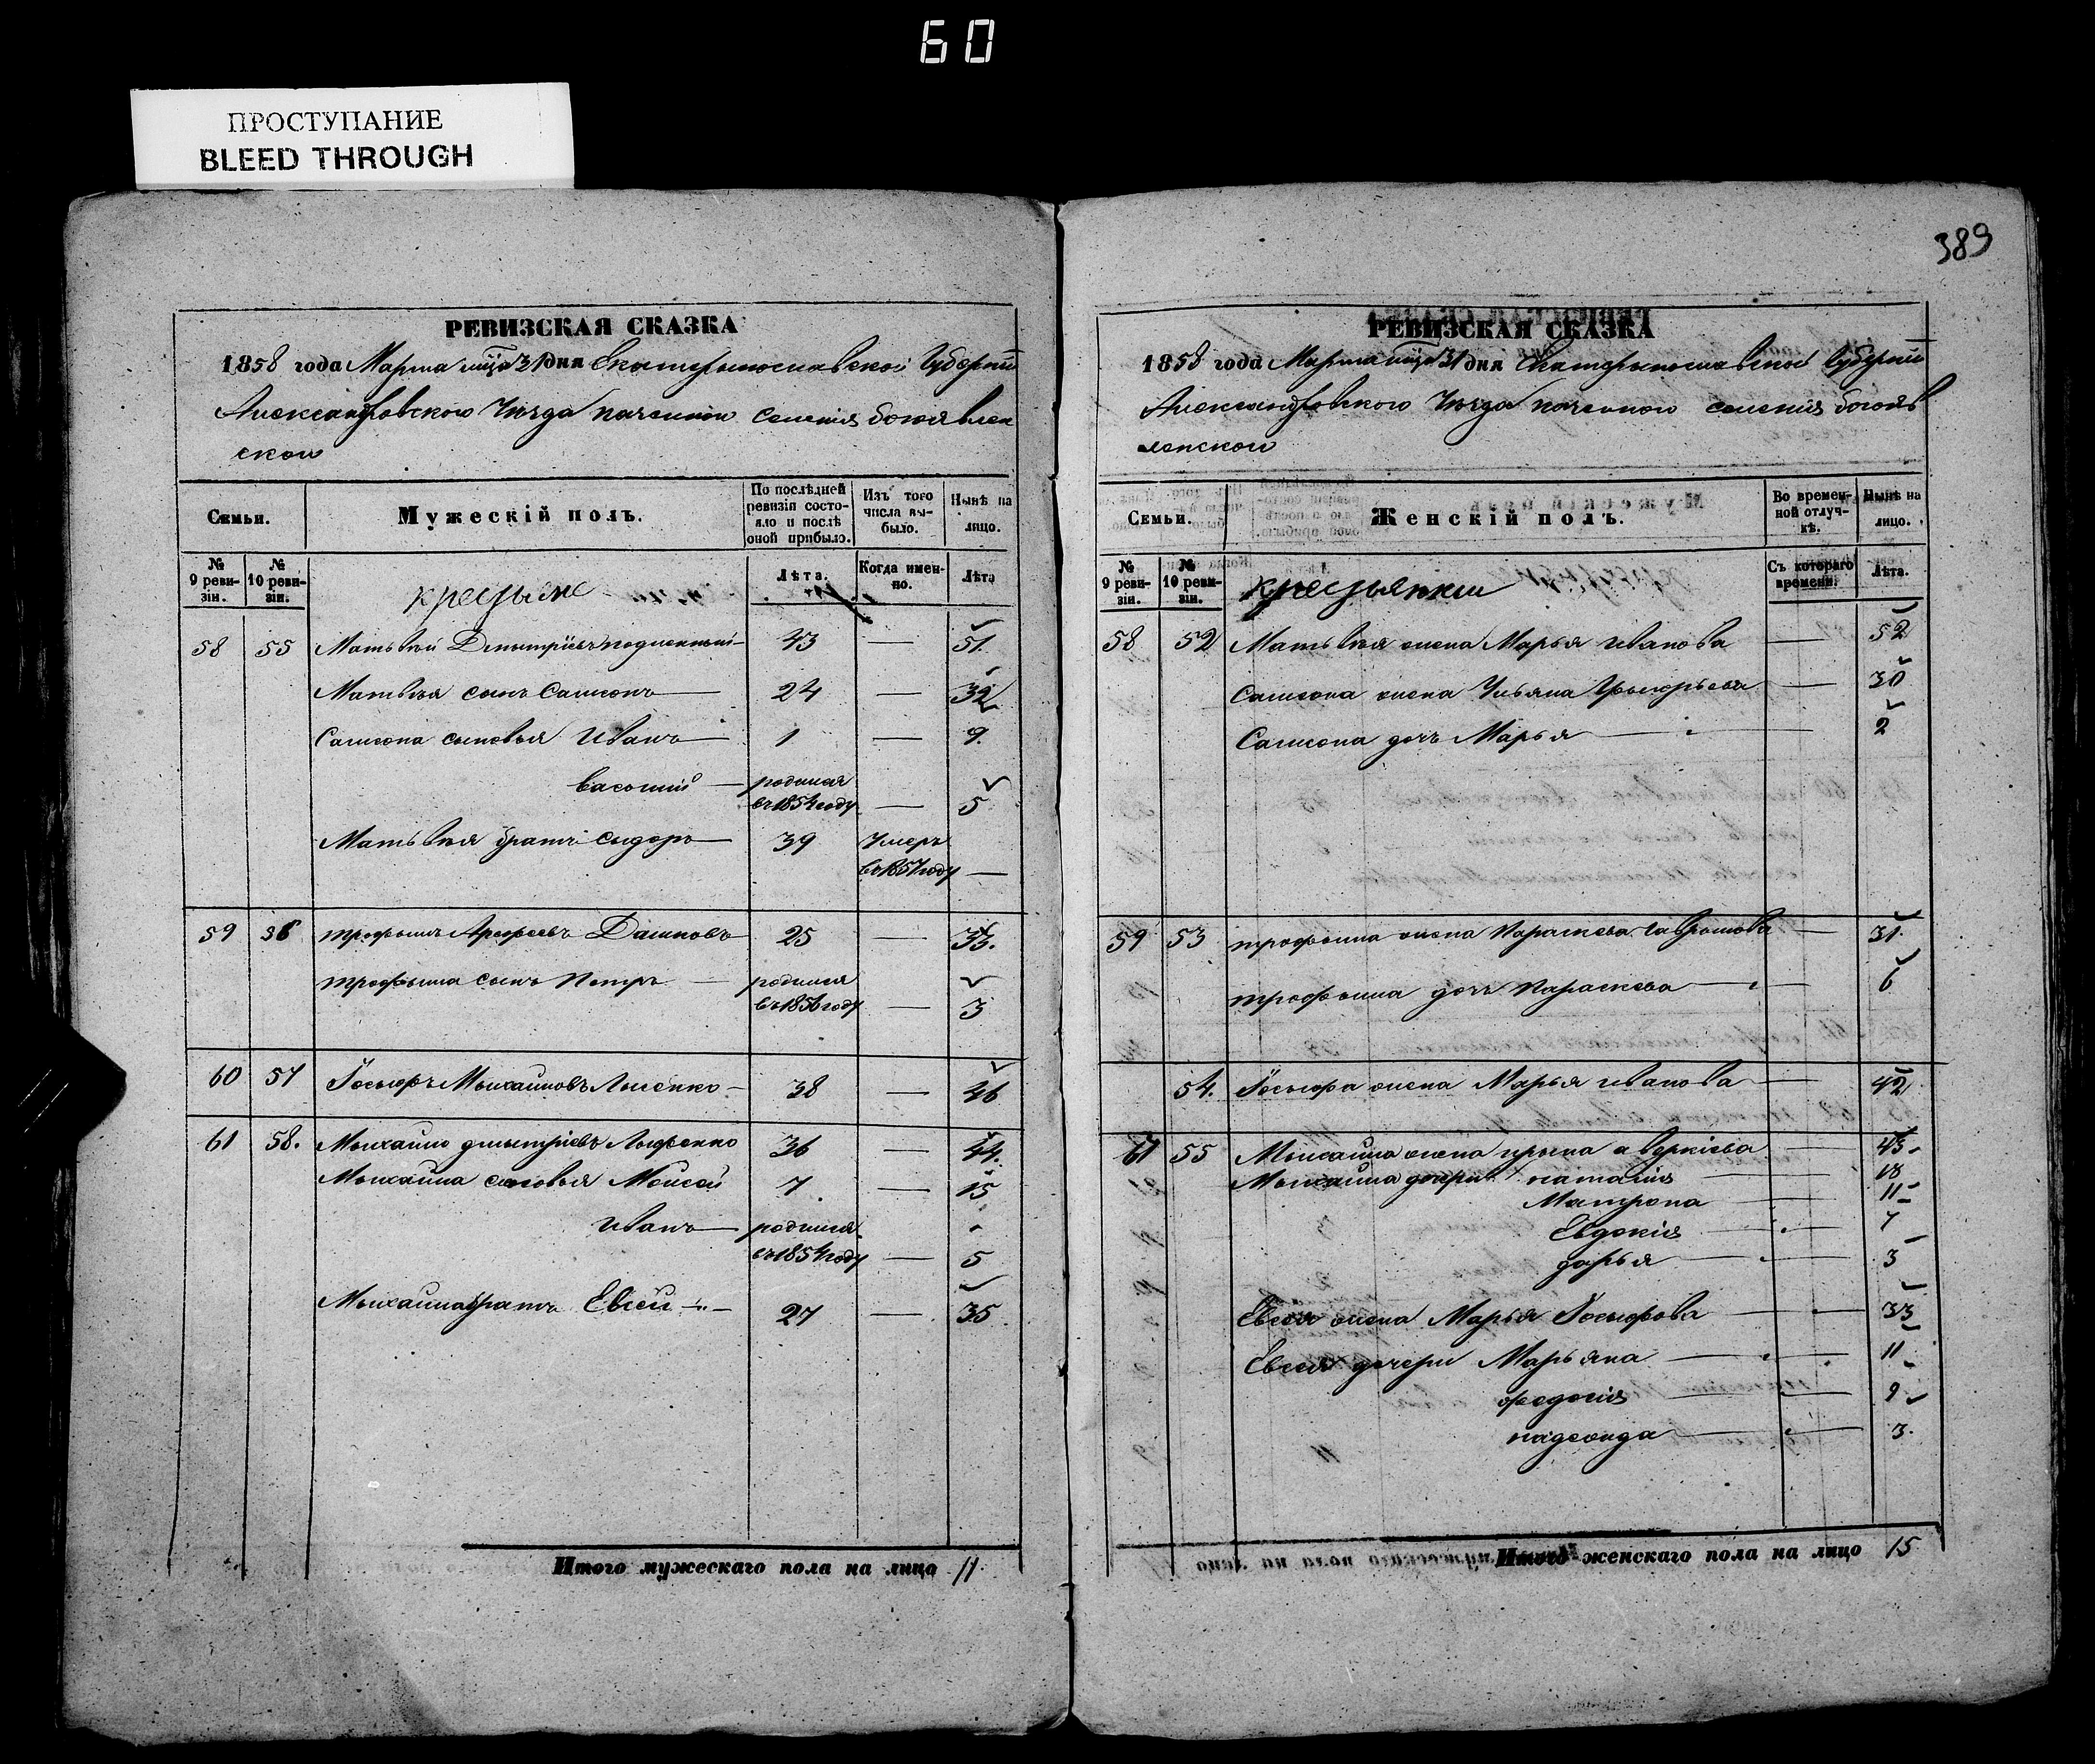 60
ПРОСТУПАНИЕ
BLEED THROUGH
РЕВИЗСКАЯ СКАЗКА
1858 года Марта мца 31 дня Екатерынославской Губерніи
Александровского Уѣзда казенной селенія богоявлен
ской
Семьи.
Мужескій полъ.
По послѣдней ревизіи состояло и послѣ оной прибыло.
Изъ того числа выбыло.
Нынѣ на лицо.
№ 9 ревизіи.
№ 10 ревизіи.
крестьяне
Лѣта.
Когда именно.
Лѣта
58 55 Матьвѣй Дмытріевъ — 43 — 51.
Матьвѣя сынъ Самсонъ — 24 — 32
Самсона сыновья Иванъ — 1 — 9.
васылій — родился
въ 1854 году — 5
Матьвѣя братъ сыдоръ — 39 Умеръ
въ 1857 году —
59 56 трофымъ Арефьевъ Дашковъ 25 — 33.
трофыма сынъ Петръ — родился
въ 1856 году — 3
60 57 Іосыфъ Мыхайловъ Лысенко — 38 — 46
61 58. Мыхайло дмытріевъ 36 — 44.
Мыхайла сыновья Моисей 7 — 15
иванъ — родился
въ 1854 году — 5
Мыхайла братъ Евсей — 27 — 35
Итого мужескаго пола на лицо 11.
389
РЕВИЗСКАЯ СКАЗКА
1858 года Марта мца 31 дня Екатерынославской Губерніи
Александровского Уѣзда казенного селенія богояв
ленской
Семьи.
Женскій полъ.
Во временной отлучкѣ.
Нынѣ на лицо.
№ 9 ревизіи.
№ 10 ревизіи.
крестьянки
Съ котораго времени.
Лѣта.
58 52 Матьвѣя жена Марья иванова — 52
Самсона жена Ульяна Грыгорьева — 30
Самсона дочь Марья — 2
59 53 трофыма жена Параскева Гаврылова — 31.
трофыма дочь Параскева — 6
54. Іосыфа жена Марья иванова — 42
61 55 Мыхайла жена ирына аверкіева 43
Мыхайла дочери наталія — 18
Матрона — 11
Евдокія — 7
дарья — 3
Евсея жена Марья Іосыфова — 33
Евсея дочери Марьяна — 11
федосія — 9
надежда — 3.
Итого женскаго пола на лицо 15